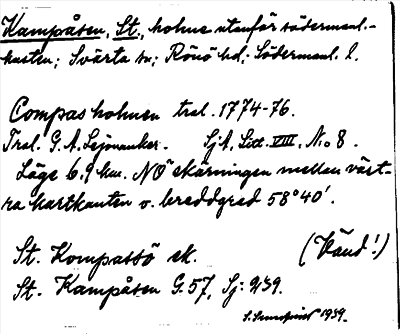 Kampåsen, St., holme utanför södermanl.-
kusten; Svärta sn; Rönö hd; Södermanl. l.
Compas holmen trol. 1774-76.
Trol. G. A. Leijonanker. SjA, Litt. VIII, No 8.
Läge 6,9 km. NO skärningen mellan väst-
ra kartkanten o. breddgrad 58°40'.
St. Kompassö ek. (Vänd!)
St. Kampåsen G. 57, Sj: 939.
1939.